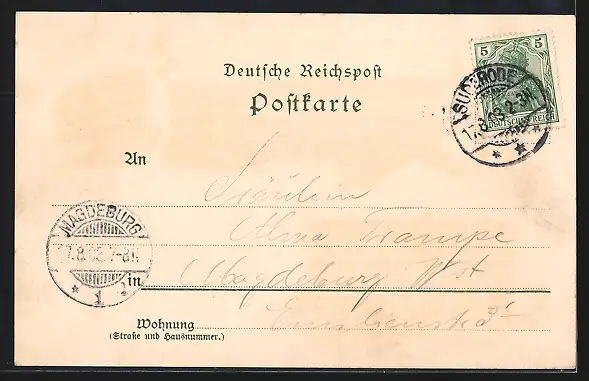 Deutsche Reichspost
Postkarte
5 5
DEUTSCHES REICH
SUDERODE
17.8.03. 2-3N.
An
Fräulein
Alma Trampe
MAGDEBURG
17.8.03. 7-8N.
1
in
Magdeburg Wst
Wohnung
Emilienstr. 3
(Straße und Hausnummer.)